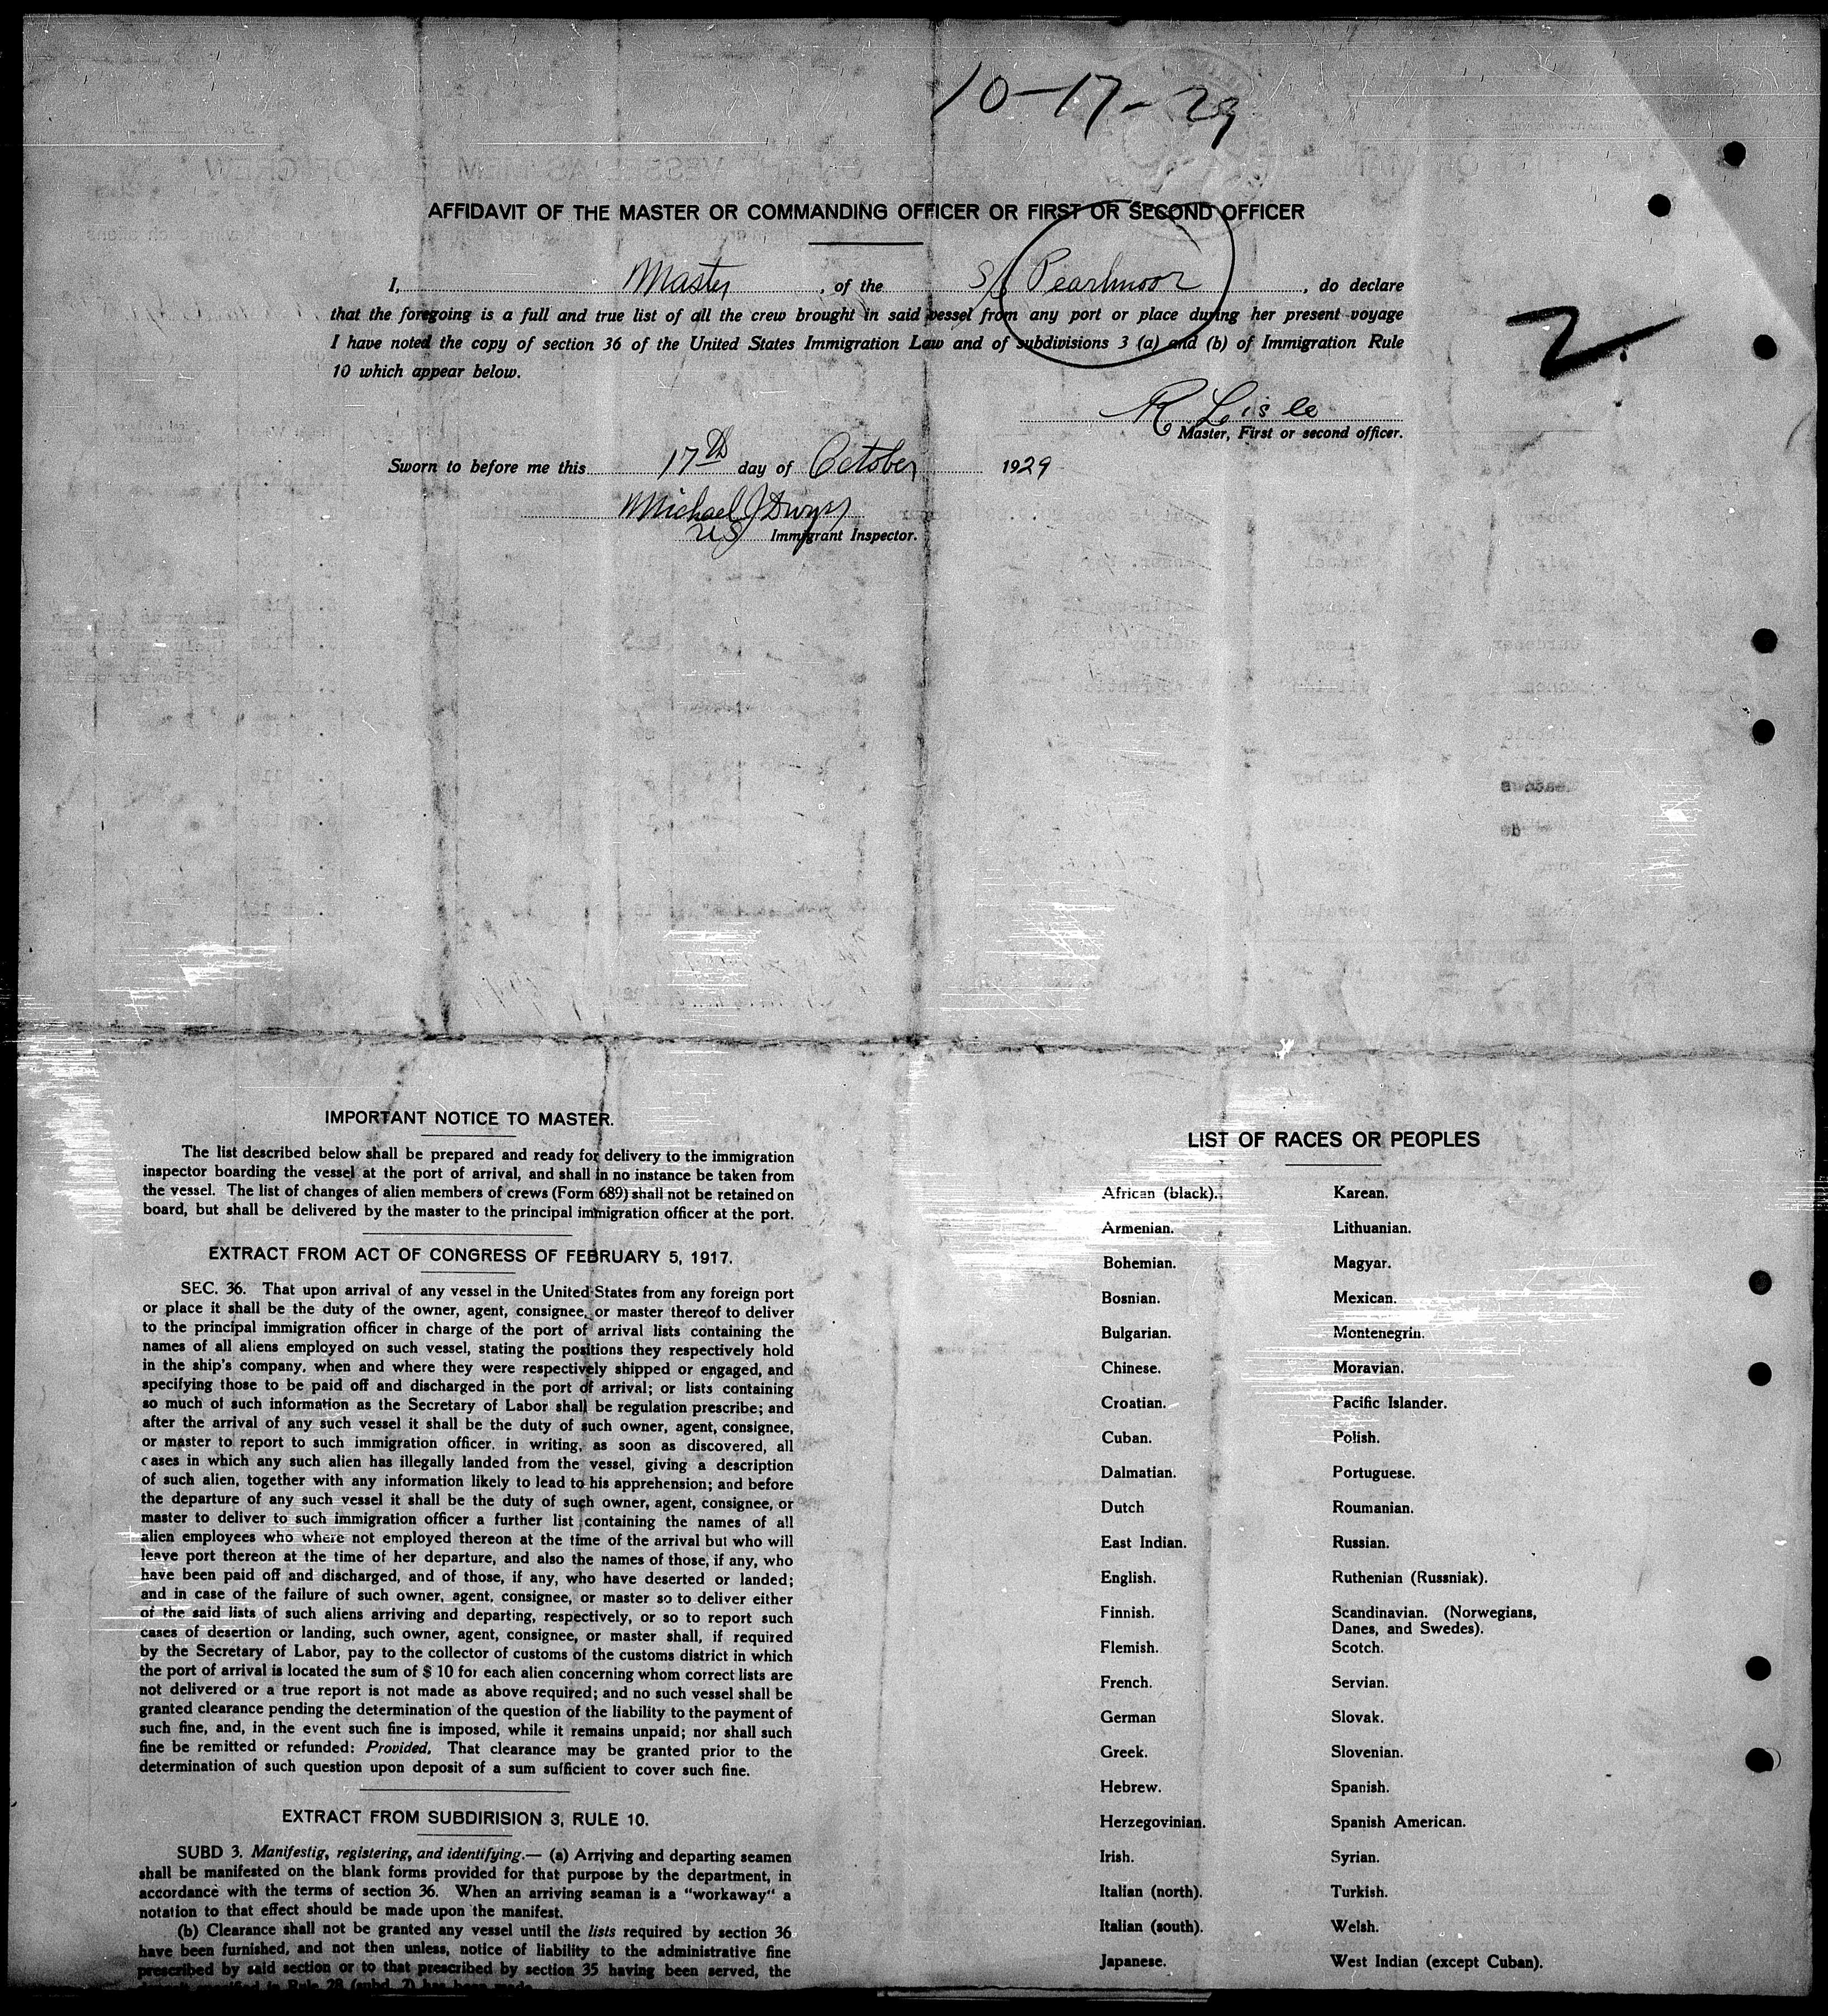 10-17-29
AFFIDAVIT OF THE MASTER OR COMMANDING OFFICER OR FIRST OR SECOND OFFICER
I, Master, of the S/S Pearlmoor, do declare
that the foregoing is a full and true list of all the crew brought in said vessel from any port or place during her present voyage
I have noted the copy of section 36 of the United States Immigration Law and of subdivisions 3 (a) and (b) of Immigration Rule
10 which appear below.
2
R Lisle
Master, First or second officer.
Sworn to before me this 17th day of October 1929
Michael J
US Immigrant Inspector.
IMPORTANT NOTICE TO MASTER.
The list described below shall be prepared and ready for delivery to the immigration
inspector boarding the vessel at the port of arrival, and shall in no instance be taken from
the vessel. The list of changes of alien members of crews (Form 689) shall not be retained on
board, but shall be delivered by the master to the principal immigration officer at the port.
EXTRACT FROM ACT OF CONGRESS OF FEBRUARY 5, 1917.
SEC. 36. That upon arrival of any vessel in the United States from any foreign port
or place it shall be the duty of the owner, agent, consignee, or master thereof to deliver
to the principal immigration officer in charge of the port of arrival lists containing the
names of all aliens employed on such vessel, stating the positions they respectively hold
in the ship's company, when and where they were respectively shipped or engaged, and
specifying those to be paid off and discharged in the port of arrival; or lists containing
so much of such information as the Secretary of Labor shall be regulation prescribe; and
after the arrival of any such vessel it shall be the duty of such owner, agent, consignee,
or master to report to such immigration officer. in writing, as soon as discovered, all
cases in which any such alien has illegally landed from the vessel, giving a description
of such alien, together with any information likely to lead to his apprehension; and before
the departure of any such vessel it shall be the duty of such owner, agent, consignee, or
master to deliver to such immigration officer a further list containing the names of all
alien employees who where not employed thereon at the time of the arrival but who will
leave port thereon at the time of her departure, and also the names of those, if any, who
have been paid off and discharged, and of those, if any, who have deserted or landed;
and in case of the failure of such owner, agent, consignee, or master so to deliver either
of the said lists of such aliens arriving and departing, respectively, or so to report such
cases of desertion or landing, such owner, agent, consignee, or master shall, if required
by the Secretary of Labor, pay to the collector of customs of the customs district in which
the port of arrival is located the sum of $ 10 for each alien concerning whom correct lists are
not delivered or a true report is not made as above required; and no such vessel shall be
granted clearance pending the determination of the question of the liability to the payment of
such fine, and, in the event such fine is imposed, while it remains unpaid; nor shall such
fine be remitted or refunded: Provided, That clearance may be granted prior to the
determination of such question upon deposit of a sum sufficient to cover such fine.
EXTRACT FROM SUBDIRISION 3, RULE 10.
SUBD 3. Manifestig, registering, and identifying.— (a) Arriving and departing seamen
shall be manifested on the blank forms provided for that purpose by the department, in
accordance with the terms of section 36. When an arriving seaman is a "workaway" a
notation to that effect should be made upon the manifest.
(b) Clearance shall not be granted any vessel until the lists required by section 36
have been furnished, and not then unless, notice of liability to the administrative fine
prescribed by said section or to that prescribed by section 35 having been served, the
in Rule 28 (subd. 7) has been made
LIST OF RACES OR PEOPLES
African (black). Karean.
Armenian. Lithuanian.
Bohemian. Magyar.
Bosnian. Mexican.
Bulgarian. Montenegrin.
Chinese. Moravian.
Croatian. Pacific Islander.
Cuban. Polish.
Dalmatian. Portuguese.
Dutch Roumanian.
East Indian. Russian.
English. Ruthenian (Russniak).
Finnish. Scandinavian. (Norwegians,
Danes, and Swedes).
Flemish. Scotch.
French. Servian.
German Slovak.
Greek. Slovenian.
Hebrew. Spanish.
Herzegovinian. Spanish American.
Irish. Syrian.
Italian (north). Turkish.
Italian (south). Welsh.
Japanese. West Indian (except Cuban).